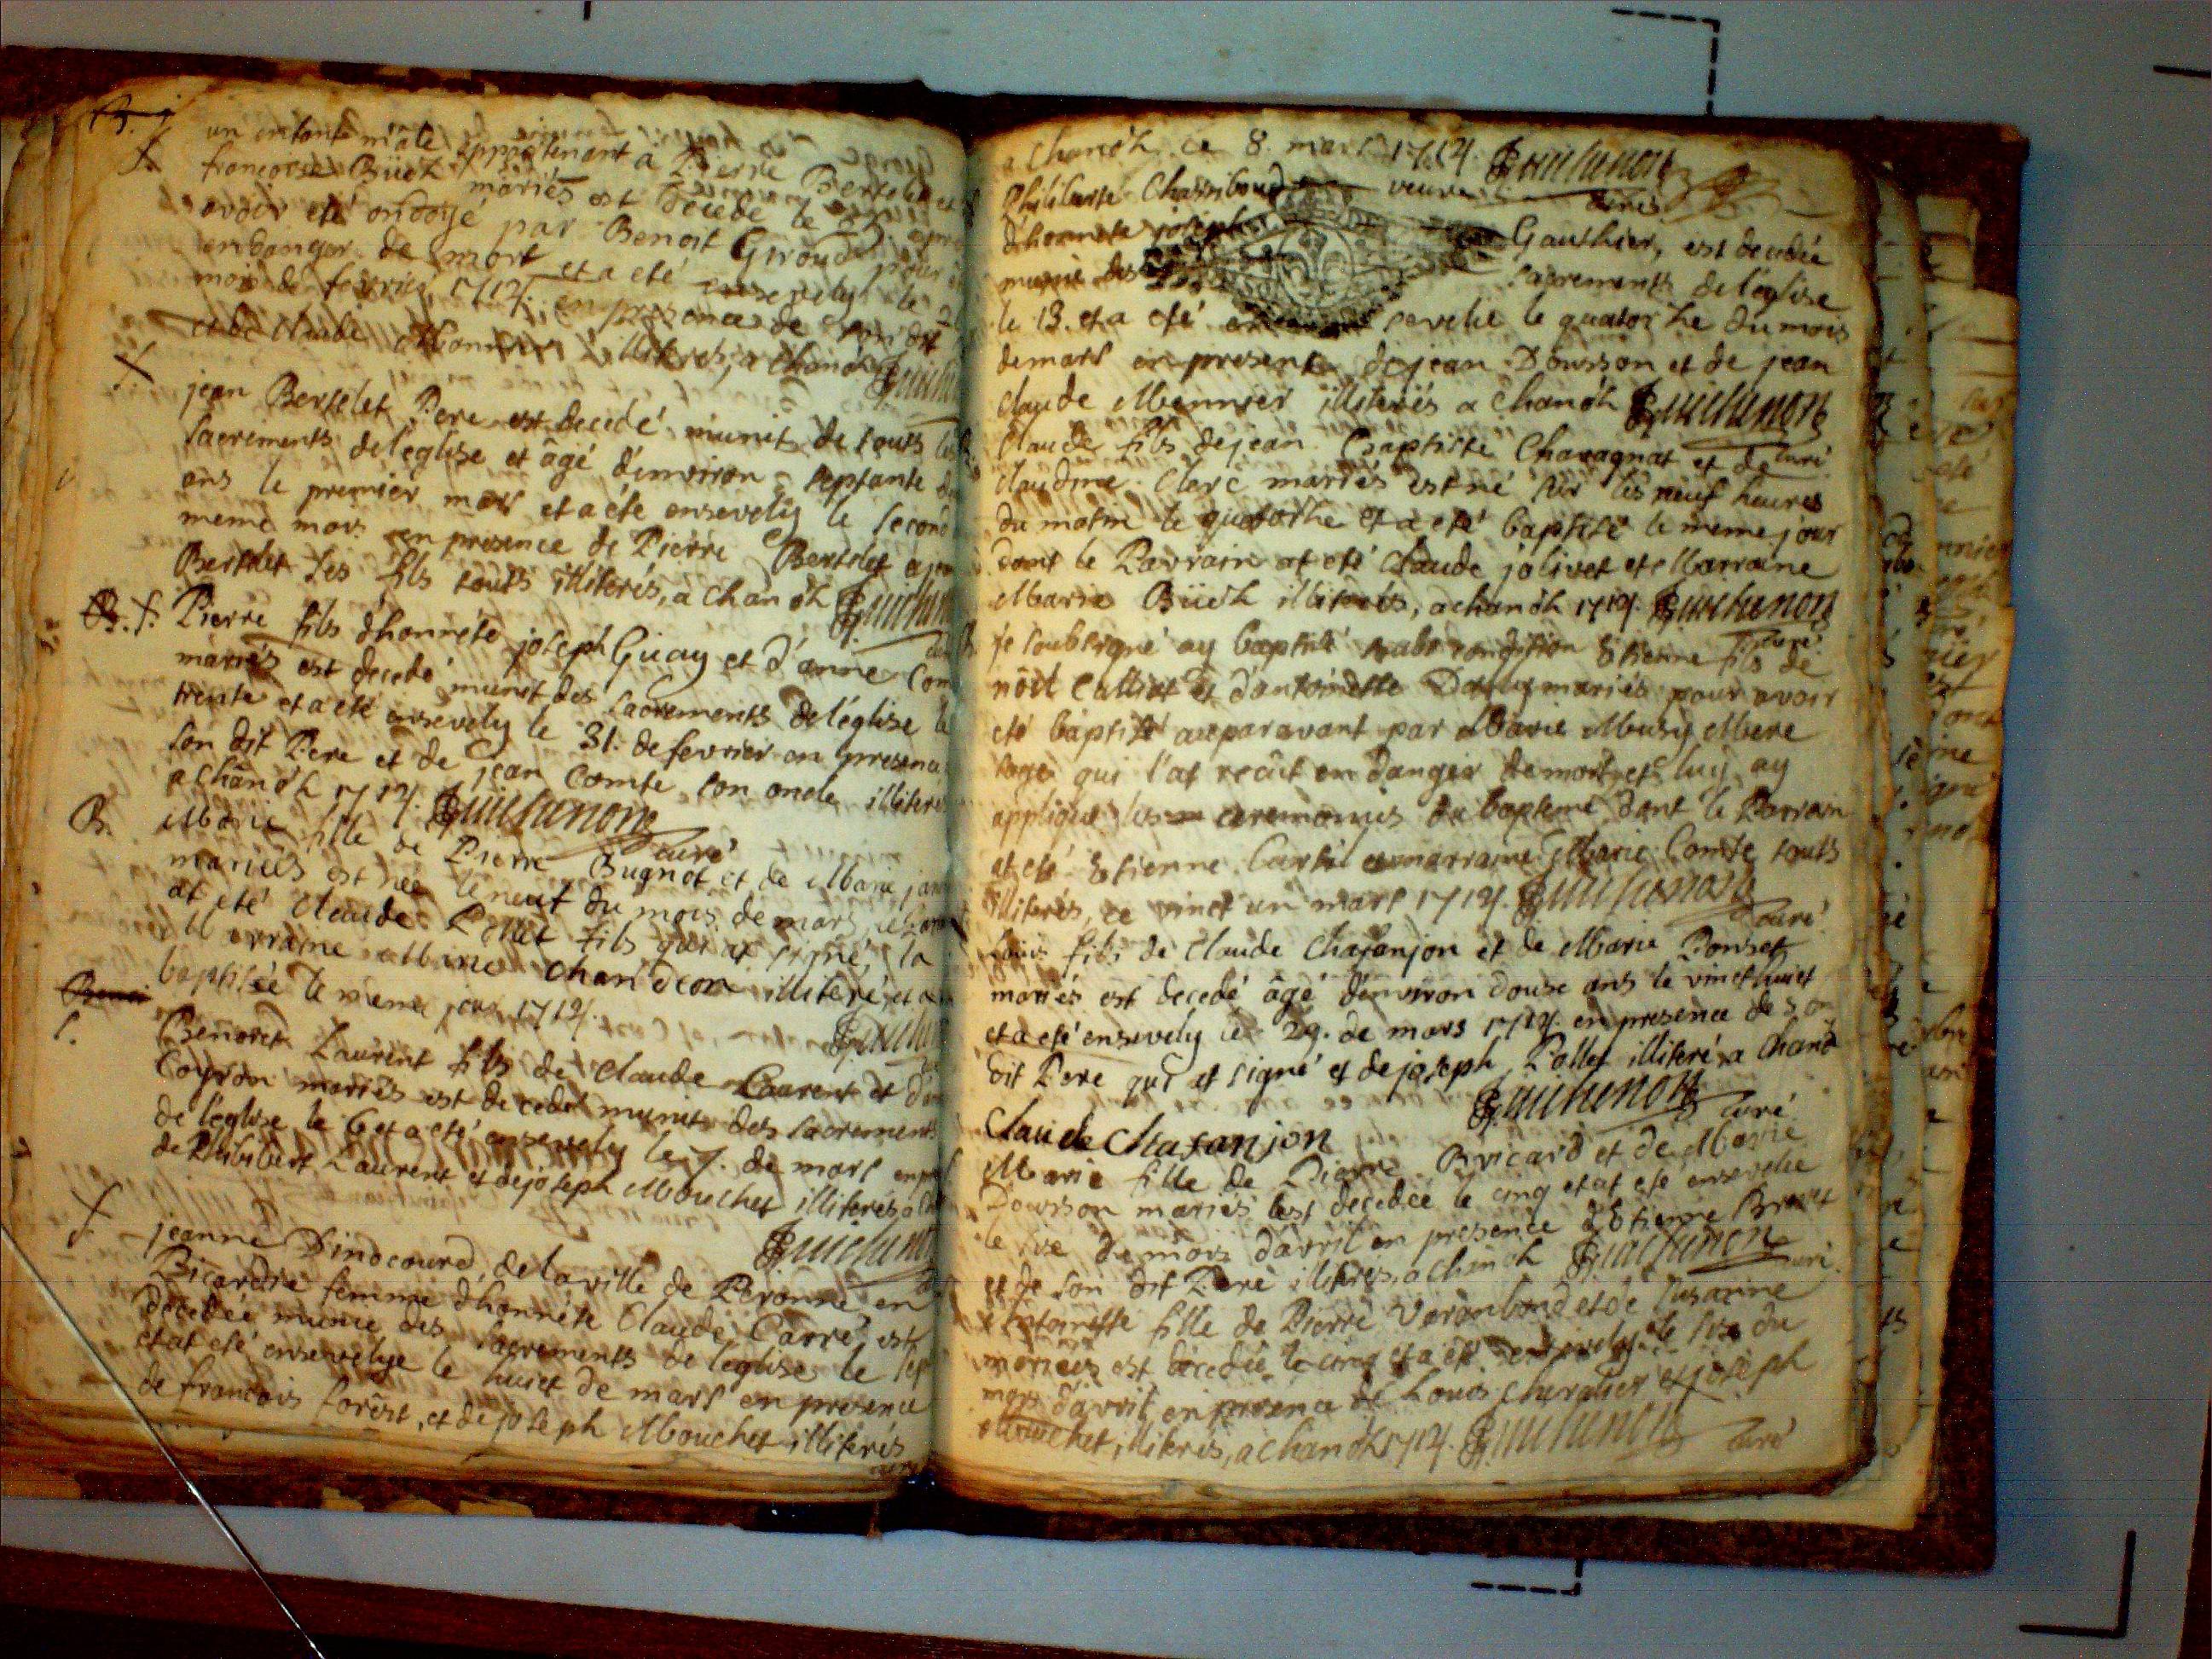 B.
un enfant mâle appartenant à Pierre Bertelet et
françoise Büet mariés est decedé le
avoir eté ondoyé par Benoit Giroud pour
en danger de mort et a eté ensevely le
mois de fevrier 1714. en presence de son dit
et de Claude Monnier illiterés, a Chanoh
jean Bertelet Pere est decedé munit de touts les
sacrements de l'eglise et âgé d'environ septante
ans le premier mars et a été ensevely le second
meme mois en presence de Pierre Bertelet
Bertelet ses fils touts illiterés, a chanoh Guichenon
B. Pierre fils d'honnéte joseph Guay et d'anne Com
mariés est decedé munit des sacrements de l'église le
trente et a eté ensevely le 31. de fevrier en presence
son dit Pere et de jean Comte son oncle illiteré
a chânoh 1714. Guichenon
curé
B. Marie fille de Pierre Bugnot et de Marie jan
mariés est née le neuf du mois de mars
at eté Claude Pollet fils qui at signé, la
Marraine Marie Chandeon illiteré et a
baptisée le meme jour 1714.
Benoit Laurent fils de Claude Laurent et d'
Coyron mariés est decedé munit des sacrements
de l'eglise le 6 et a eté ensevely le 7. de mars en
de Philibert Laurent et de joseph Mouchet illiterés
Guichenon
jeanne Dinocourd, de la ville de Peronne en
Picardie femme d'honnéte Claude Carré est
decedée munie des sacrements de l'eglise le sep
et at eté ensevelye le huict de mars en presence
de francois forêst, et de joseph Mouchet illiterés
a Chanoh ce 8. mars 1714. Guichenon
Philiberte Chassiboud veuve curé
d'honnete joseph Gauthier, est decedée
munie des sacrements de l'église
le 13. et a eté sevelie le quatorhe du mois
de mars en presence de jean Dousson et de jean
claude Monnier illiterés a Chanoh Guichenon
Claude fils de jean Baptiste Chavagnat et de curé
Claudine Clerc mariés est né sur les neuf heures
du matin le quatorhe et a eté baptisé le meme jour
dont le Parrain at eté Claude jolivet et Marraine
Marie Büet illiterés, a chanoh 1714. Guichenon
curé
je soubsigné ay baptisé soubs condition Etienne fils de
noit Calliat et d'antoinette mariés pour avoir
eté baptisé auparavant par Marie Musy Mere
sage qui l'at recût en danger de mort et luy ay
appliqué les ceremonies du bapteme dont le Parrain
at eté Etienne Curtil et marraine Marie Comte touts
illiterés, ce vinct un mars 1714. Guichenon
curé
Louis fils de Claude Chasanjon et de Marie Ponset
mariés est decedé âgé d'environ douse ans le vinct huict
et a eté ensevely le 29. de mars 1714 en presence de son
dit Pere qui at signé et de joseph Pollet illiteré a Chanoh
Guichenon
curé
Claude Chasanjon
Marie fille de Pierre Bricard et de Marie
Dousson mariés est decedée le cinq et at eté ensevelie
le sise du mois d'avril en presence d'Etienne
et de son dit Pere illiterés, a chanoh Guichenon
curé
Antoinette fille de Pierre Veronboud et de Susanne
mariées est decedée le cinq et a eté ensevelye le sise du
mois d'avril en presence de Louis Chevalier et joseph
Mouchet, illiterés, a chanoh 1714. Guichenon curé